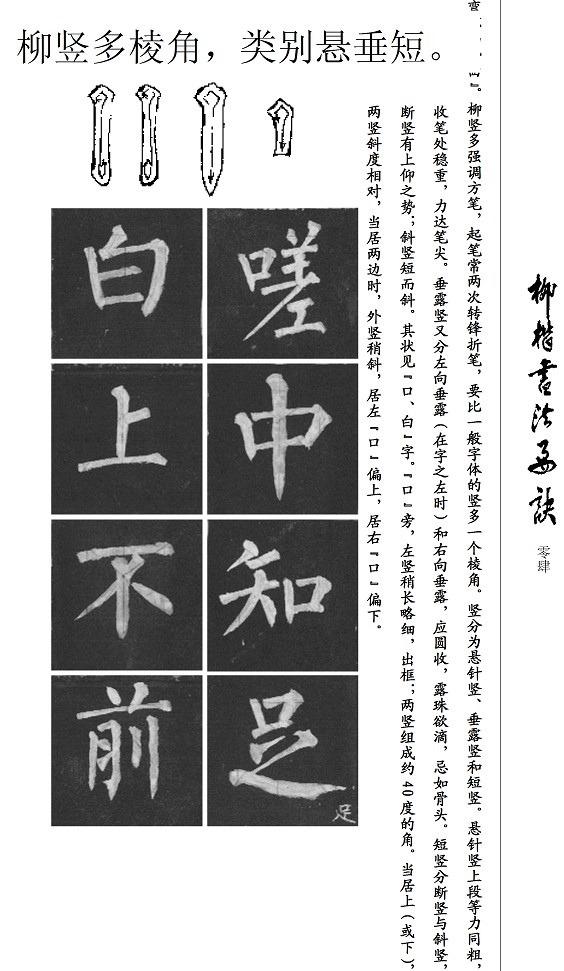 柳竖多棱角，类别悬垂短。
柳竖多强调方笔，起笔常两次转锋折笔，要比一般字体的竖多一个棱角。竖分为悬针竖、垂露竖和短竖。悬针竖上段等力同粗，
收笔处稳重，力达笔尖。垂露竖又分左向垂露（在字之左时）和右向垂露，应圆收，露珠欲滴，忌如骨头。短竖分断竖与斜竖，
断竖有上仰之势；斜竖短而斜。其状见『口、白』字。『口』旁，左竖稍长略细，出框；两竖组成约40度的角。当居上（或下），
两竖斜度相对，当居两边时，外竖稍斜，居左『口』偏上，居右『口』偏下。
嗟
中
知
足
白
上
不
前
足
柳楷书法要诀
零肆